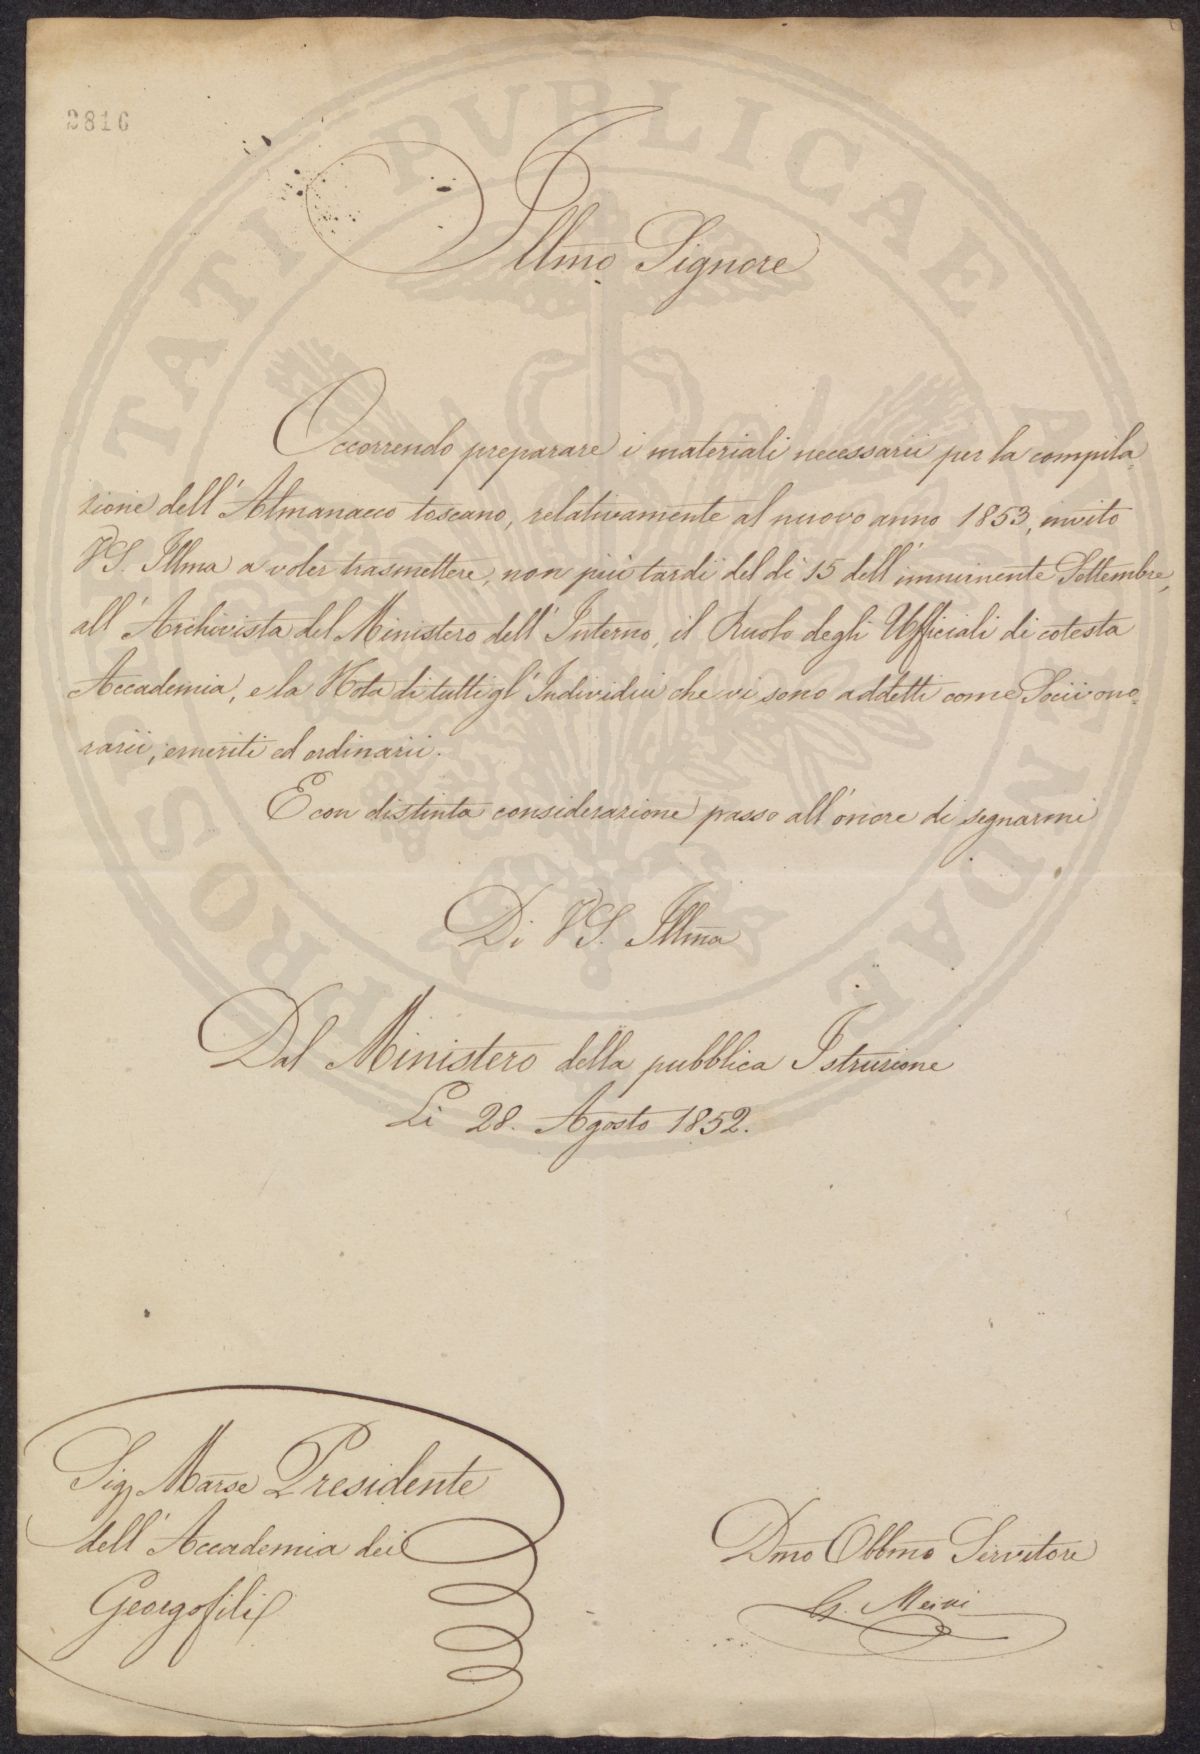 2816
Illmo Signore
Occorrendo preparare i materiali necessarii per la compila-
zione dell'Almanacco toscano, relativamente al nuovo anno 1853, invito
VS. Illma a voler trasmettere, non più tardi del dì 15 dell'imminente Settembre,
all'Archivista del Ministero dell'Interno, il Ruolo degli Ufficiali di cotesta
Accademia, e la Nota di tutti gl'Individui che vi sono addetti come Socii ono-
rarii, emeriti ed ordinarii.
E con distinta considerazione passo all'onore di segnarmi
Di VS. Illma
Dal Ministero della pubblica Istruzione
Li 28. Agosto 1852.
Sig Marse Presidente
dell'Accademia dei
Georgofili
Dmo Obbmo Servitore
G. Meini
PROSPERITATI PVBLICAE AVGENDAE